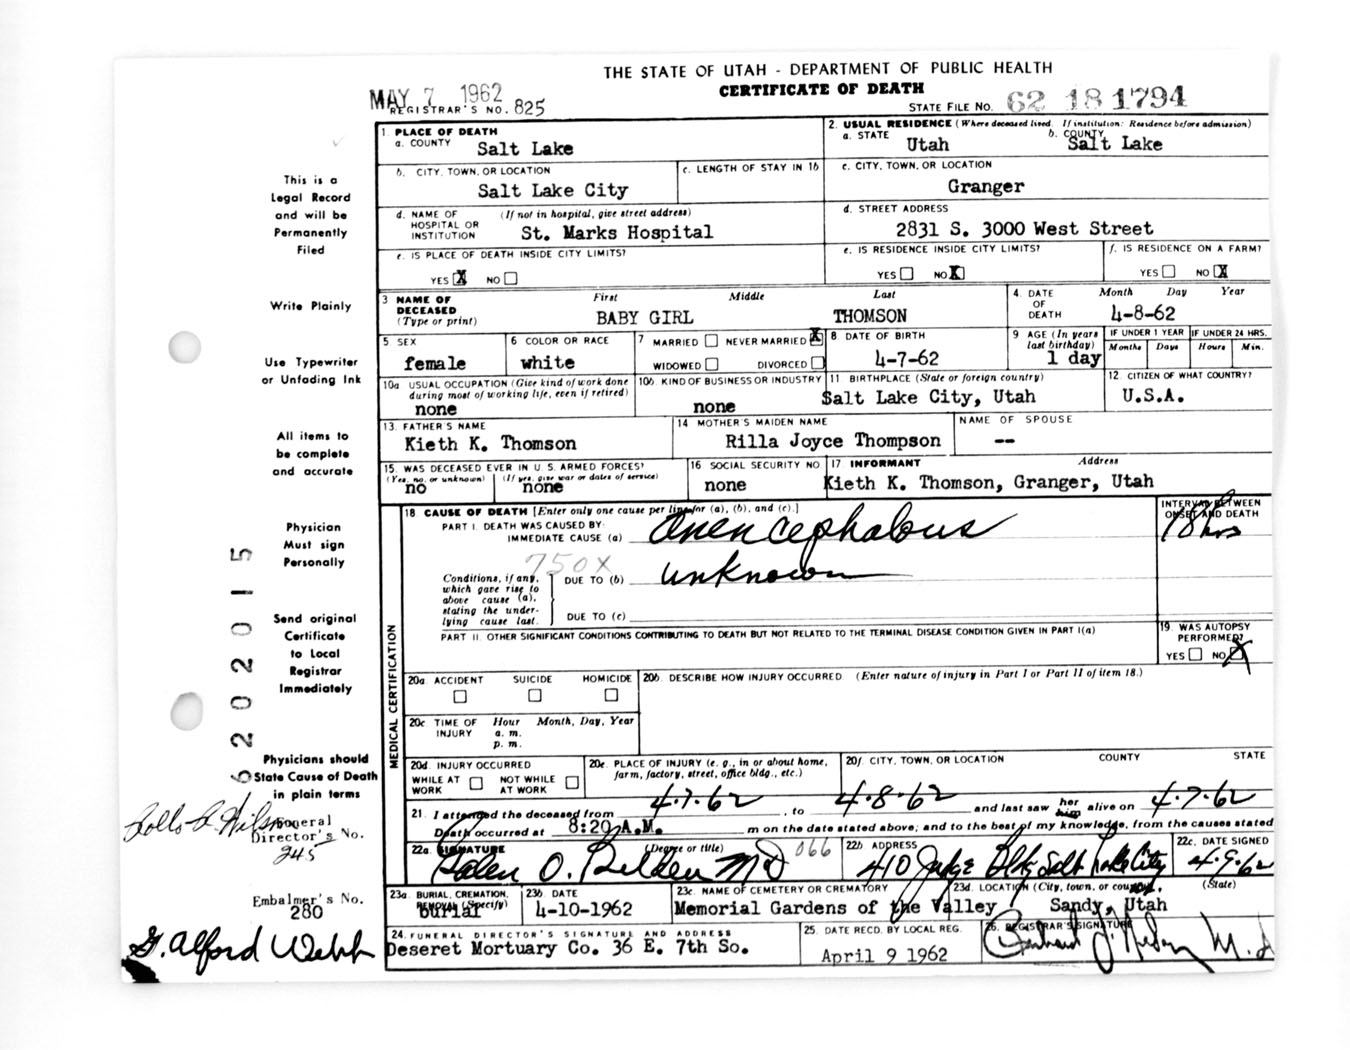 THE STATE OF UTAH - DEPARTMENT OF PUBLIC HEALTH
CERTIFICATE OF DEATH
MAY 7 1962
REGISTRAR'S NO. 825
STATE FILE NO. 62 18 1794
1. PLACE OF DEATH
a. COUNTY Salt Lake
2. USUAL RESIDENCE (Where deceased lived. If institution: Residence before admission)
a. STATE Utah b. COUNTY Salt Lake
b. CITY, TOWN, OR LOCATION Salt Lake City
c. LENGTH OF STAY IN 1b
c. CITY, TOWN, OR LOCATION Granger
d. NAME OF HOSPITAL OR INSTITUTION (If not in hospital, give street address) St. Marks Hospital
d. STREET ADDRESS 2831 S. 3000 West Street
e. IS PLACE OF DEATH INSIDE CITY LIMITS?
YES X NO
e. IS RESIDENCE INSIDE CITY LIMITS?
YES NO X
f. IS RESIDENCE ON A FARM?
YES NO X
3 NAME OF DECEASED (Type or print) First Middle Last
BABY GIRL THOMSON
4. DATE OF DEATH Month Day Year
4-8-62
5 SEX female
6 COLOR OR RACE white
7 MARRIED NEVER MARRIED X
WIDOWED DIVORCED
8 DATE OF BIRTH 4-7-62
9 AGE (In years last birthday) 1 day
IF UNDER 1 YEAR Months Days
IF UNDER 24 HRS. Hours Min.
10a USUAL OCCUPATION (Give kind of work done during most of working life, even if retired) none
10b KIND OF BUSINESS OR INDUSTRY none
11 BIRTHPLACE (State or foreign country) Salt Lake City, Utah
12 CITIZEN OF WHAT COUNTRY? U.S.A.
13. FATHER'S NAME Kieth K. Thomson
14 MOTHER'S MAIDEN NAME Rilla Joyce Thompson
NAME OF SPOUSE --
15. WAS DECEASED EVER IN U. S. ARMED FORCES?
(Yes, no, or unknown) no (If yes, give war or dates of service) none
16 SOCIAL SECURITY NO. none
17 INFORMANT Address
Kieth K. Thomson, Granger, Utah
18 CAUSE OF DEATH [Enter only one cause per line for (a), (b), and (c).]
INTERVAL BETWEEN ONSET AND DEATH
PART I. DEATH WAS CAUSED BY:
IMMEDIATE CAUSE (a) Anencephalous 18 hrs
750X
Conditions, if any, which gave rise to above cause (a), stating the underlying cause last.
DUE TO (b) unknown
DUE TO (c)
PART II. OTHER SIGNIFICANT CONDITIONS CONTRIBUTING TO DEATH BUT NOT RELATED TO THE TERMINAL DISEASE CONDITION GIVEN IN PART I(a)
19. WAS AUTOPSY PERFORMED?
YES NO X
MEDICAL CERTIFICATION
20a. ACCIDENT SUICIDE HOMICIDE
20b. DESCRIBE HOW INJURY OCCURRED (Enter nature of injury in Part I or Part II of item 18.)
20c TIME OF INJURY Hour Month, Day, Year
a. m.
p. m.
20d. INJURY OCCURRED
WHILE AT WORK NOT WHILE AT WORK
20e. PLACE OF INJURY (e. g., in or about home, farm, factory, street, office bldg., etc.)
20f. CITY, TOWN, OR LOCATION COUNTY STATE
21. I attended the deceased from 4-7-62, to 4-8-62 and last saw her him alive on 4-7-62
Death occurred at 8:20 A.M. m on the date stated above; and to the best of my knowledge, from the causes stated
22a. SIGNATURE (Degree or title) 066
Galen O. Belden MD
22b ADDRESS 410 Judge Bldg Salt Lake City
22c. DATE SIGNED 4-9-62
23a. BURIAL, CREMATION, REMOVAL (Specify) burial
23b DATE 4-10-1962
23c. NAME OF CEMETERY OR CREMATORY Memorial Gardens of the Valley
23d. LOCATION (City, town, or county) (State) Sandy, Utah
24. FUNERAL DIRECTOR'S SIGNATURE AND ADDRESS
Deseret Mortuary Co. 36 E. 7th So.
25. DATE RECD. BY LOCAL REG. April 9 1962
26. REGISTRAR'S SIGNATURE
M.D
This is a
Legal Record
and will be
Permanently
Filed
Write Plainly
Use Typewriter
or Unfading Ink
All items to
be complete
and accurate
Physician
Must sign
Personally
Send original
Certificate
to Local
Registrar
Immediately
Physicians should
State Cause of Death
in plain terms
Funeral
Director's No.
245
Embalmer's No.
280
G. Alford Webb